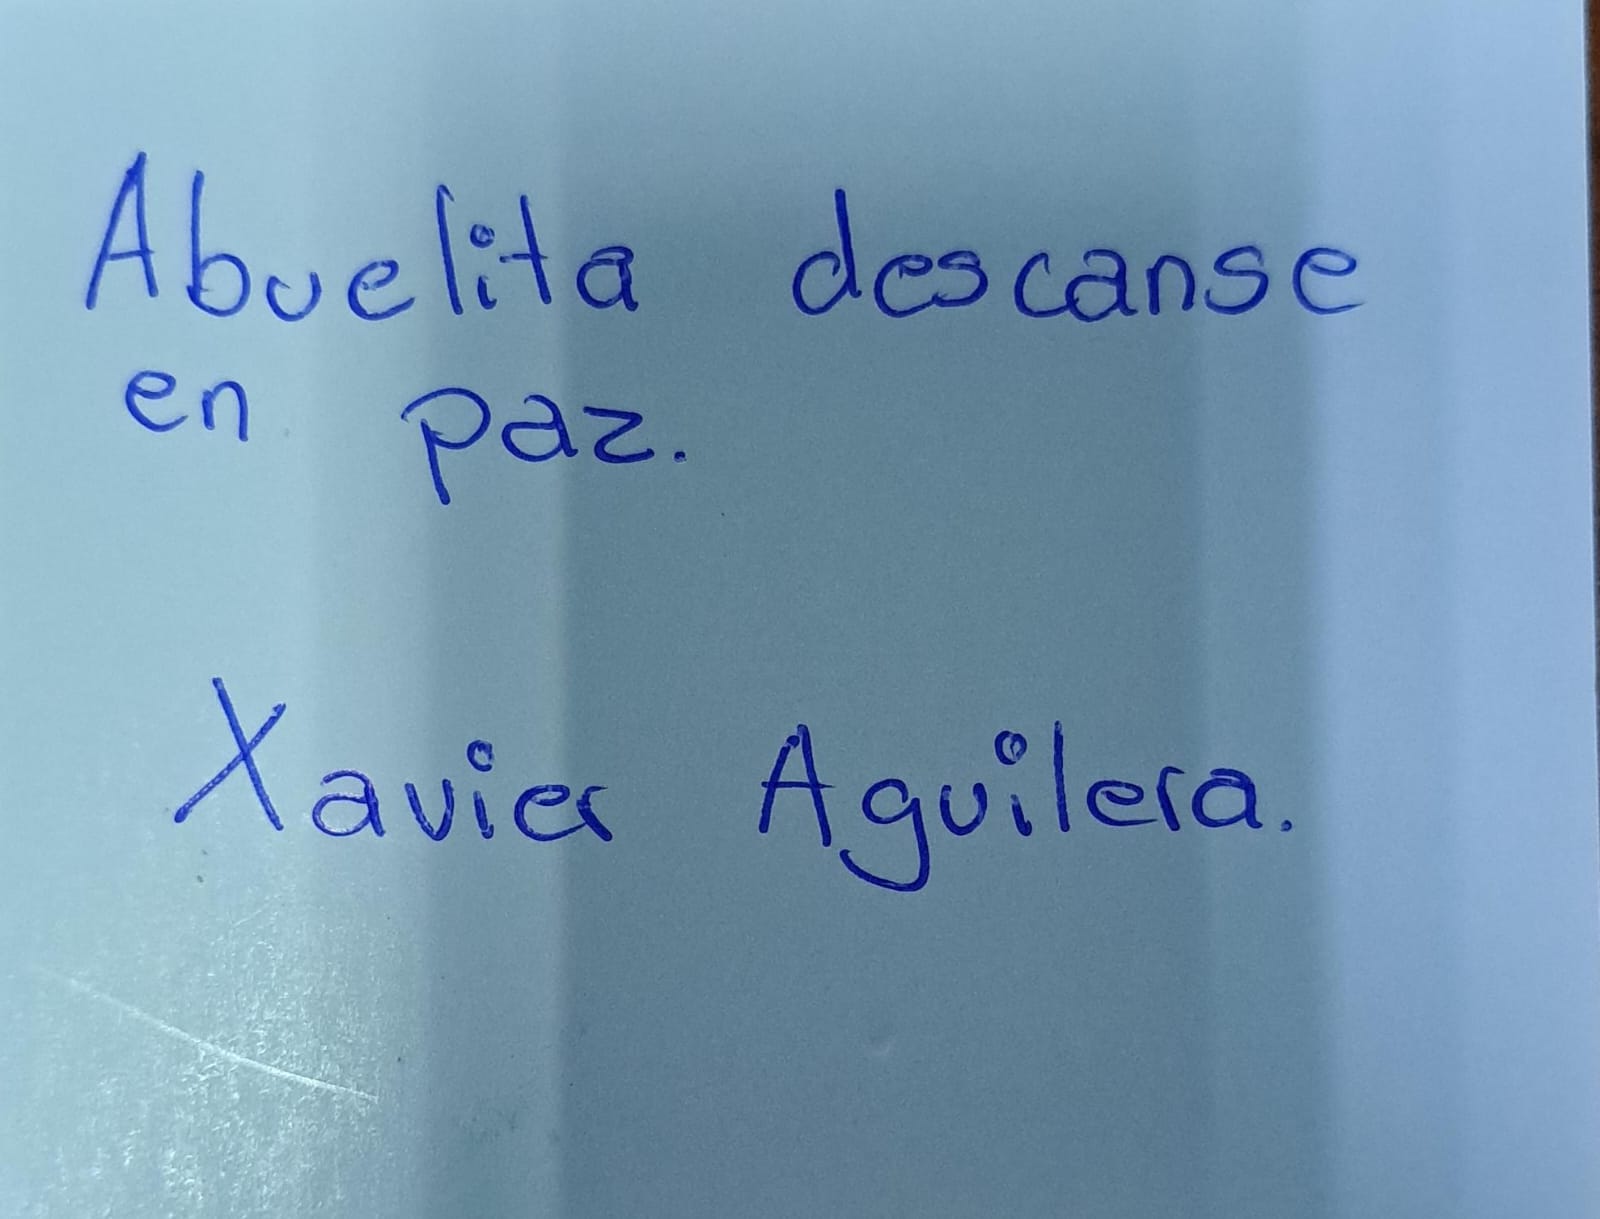 Abuelita descanse
en paz.
Xavier Aguilera.